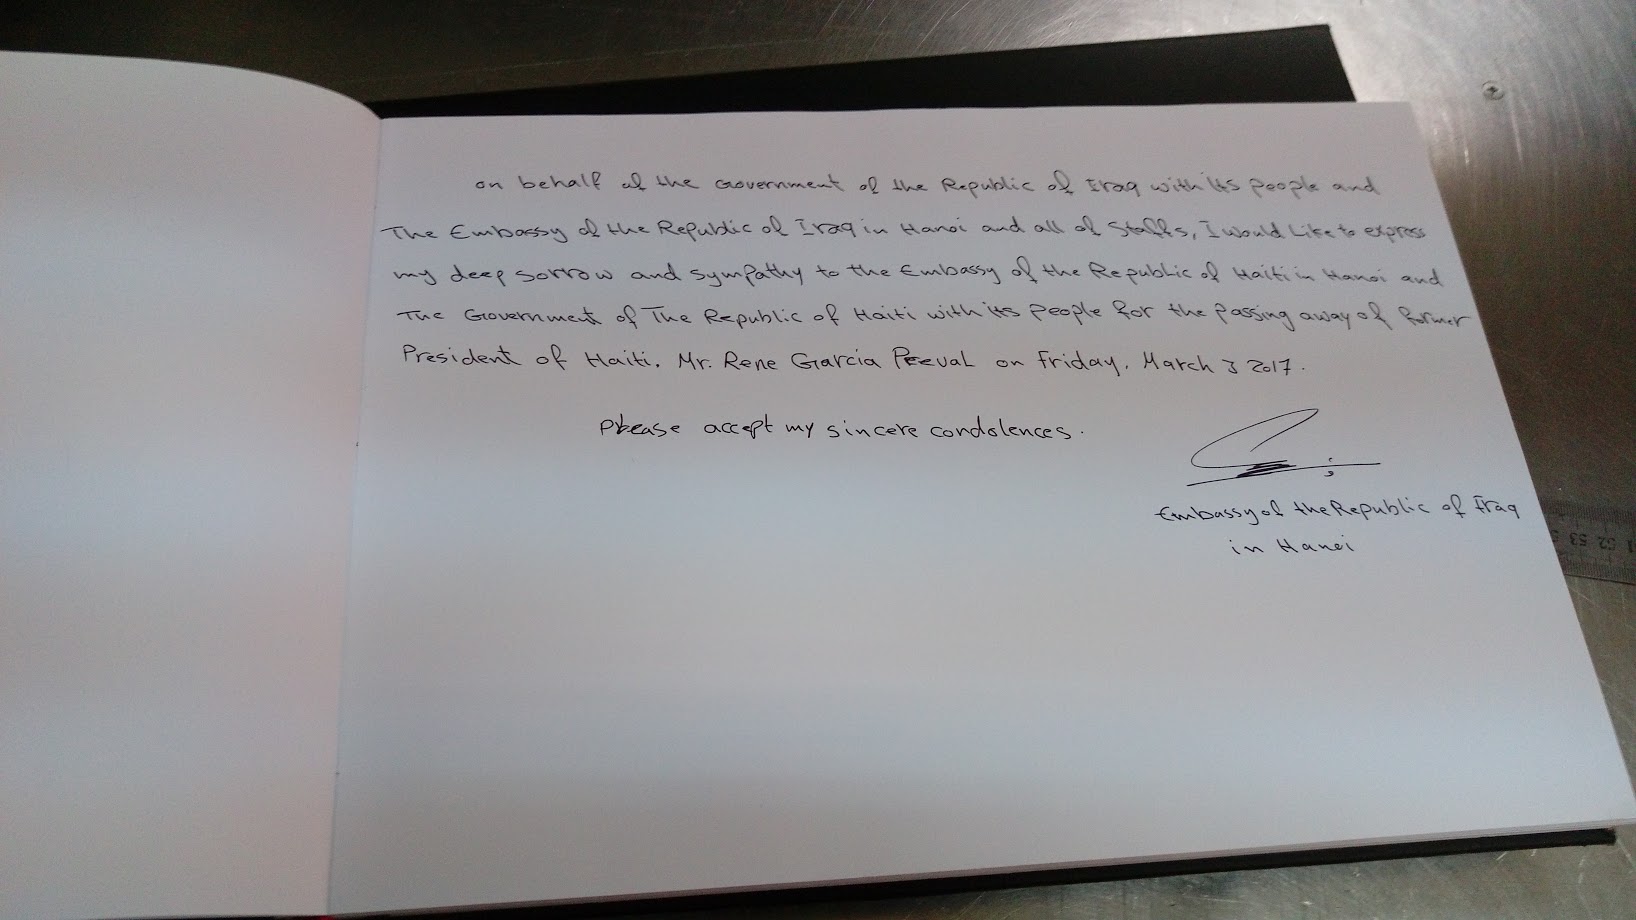 on behalf of the Government of the Republic of Iraq with its people and
The Embassy of the Republic of Iraq in Hanoi and all of Staffs, I would Like to express
my deep sorrow and sympathy to the Embassy of the Republic of Haiti in Hanoi and
The Government of The Republic of Haiti with its people for the passing away of former
President of Haiti. Mr. Rene Garcia Preval on Friday, March 3 2017.
Please accept my sincere condolences.
Embassy of the Republic of Iraq
in Hanoi
52 53